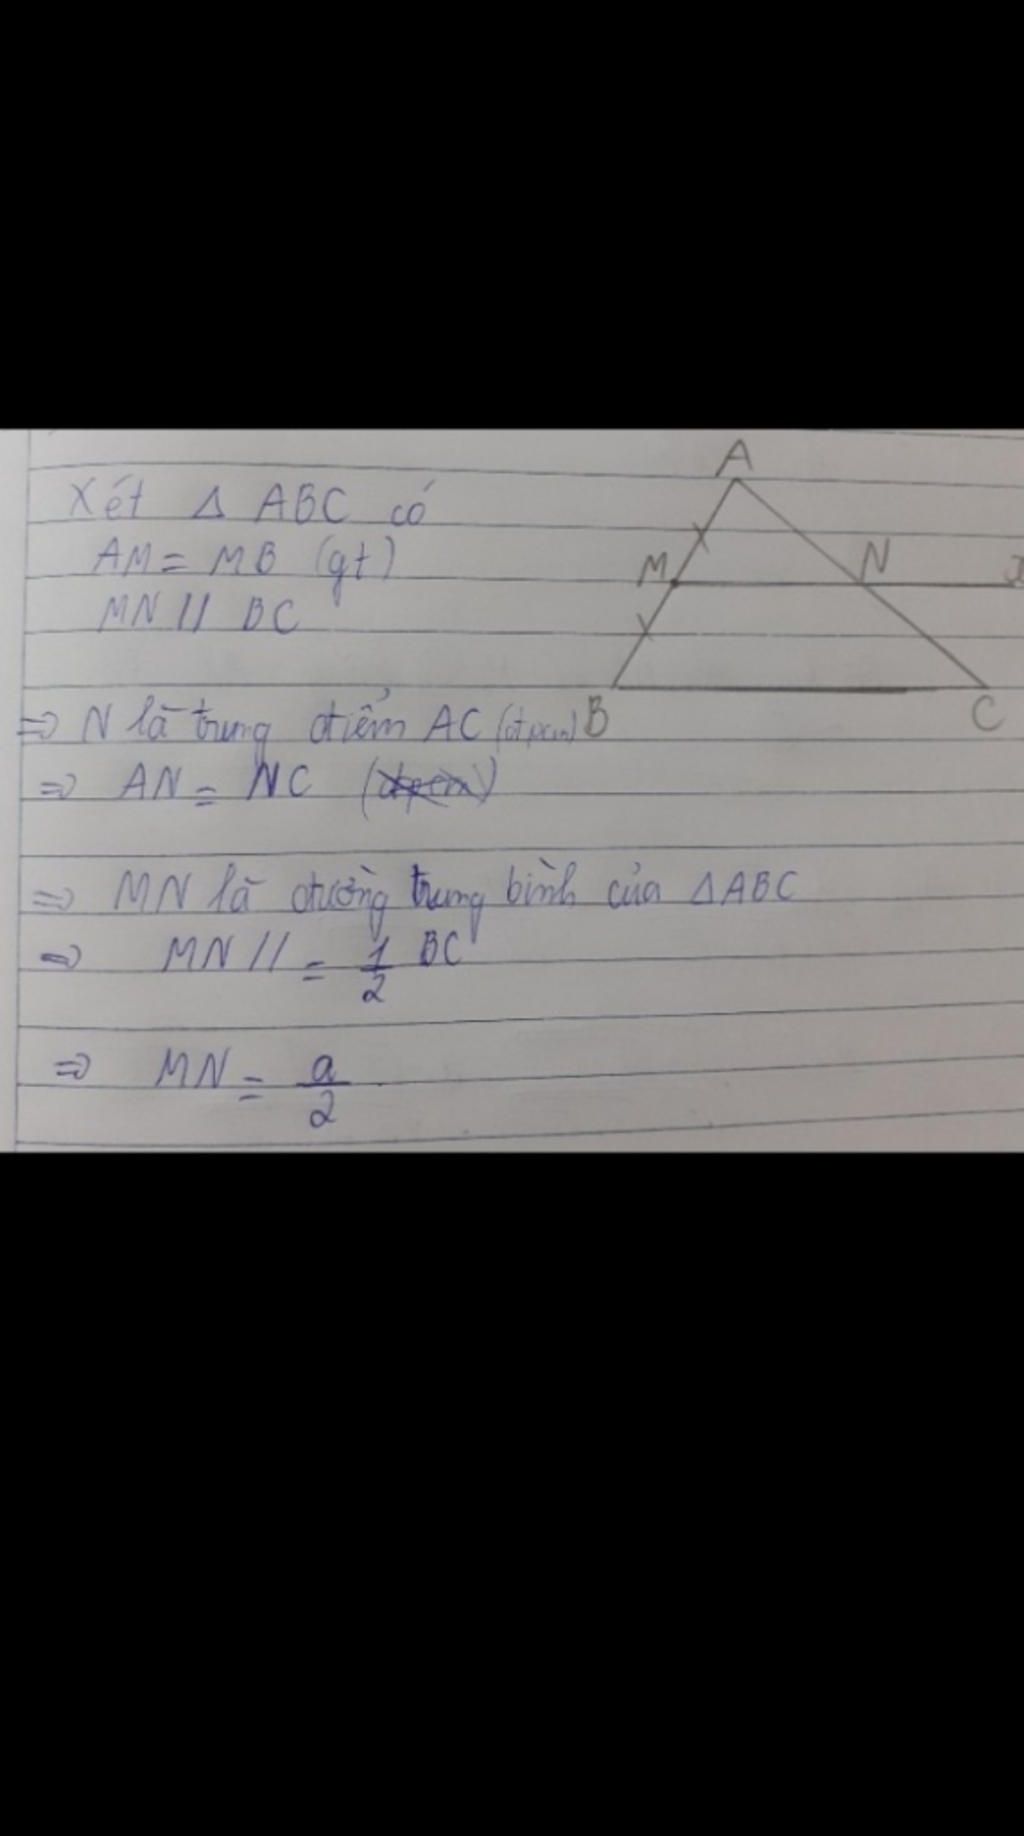 Xét Δ ABC có
AM = MB (gt)
MN // BC
⇒ N là trung điểm AC (đpcm)
⇒ AN = NC
⇒ MN là đường trung bình của ΔABC
⇒ MN // = 1/2 BC
⇒ MN = a/2
A
M N x
B C